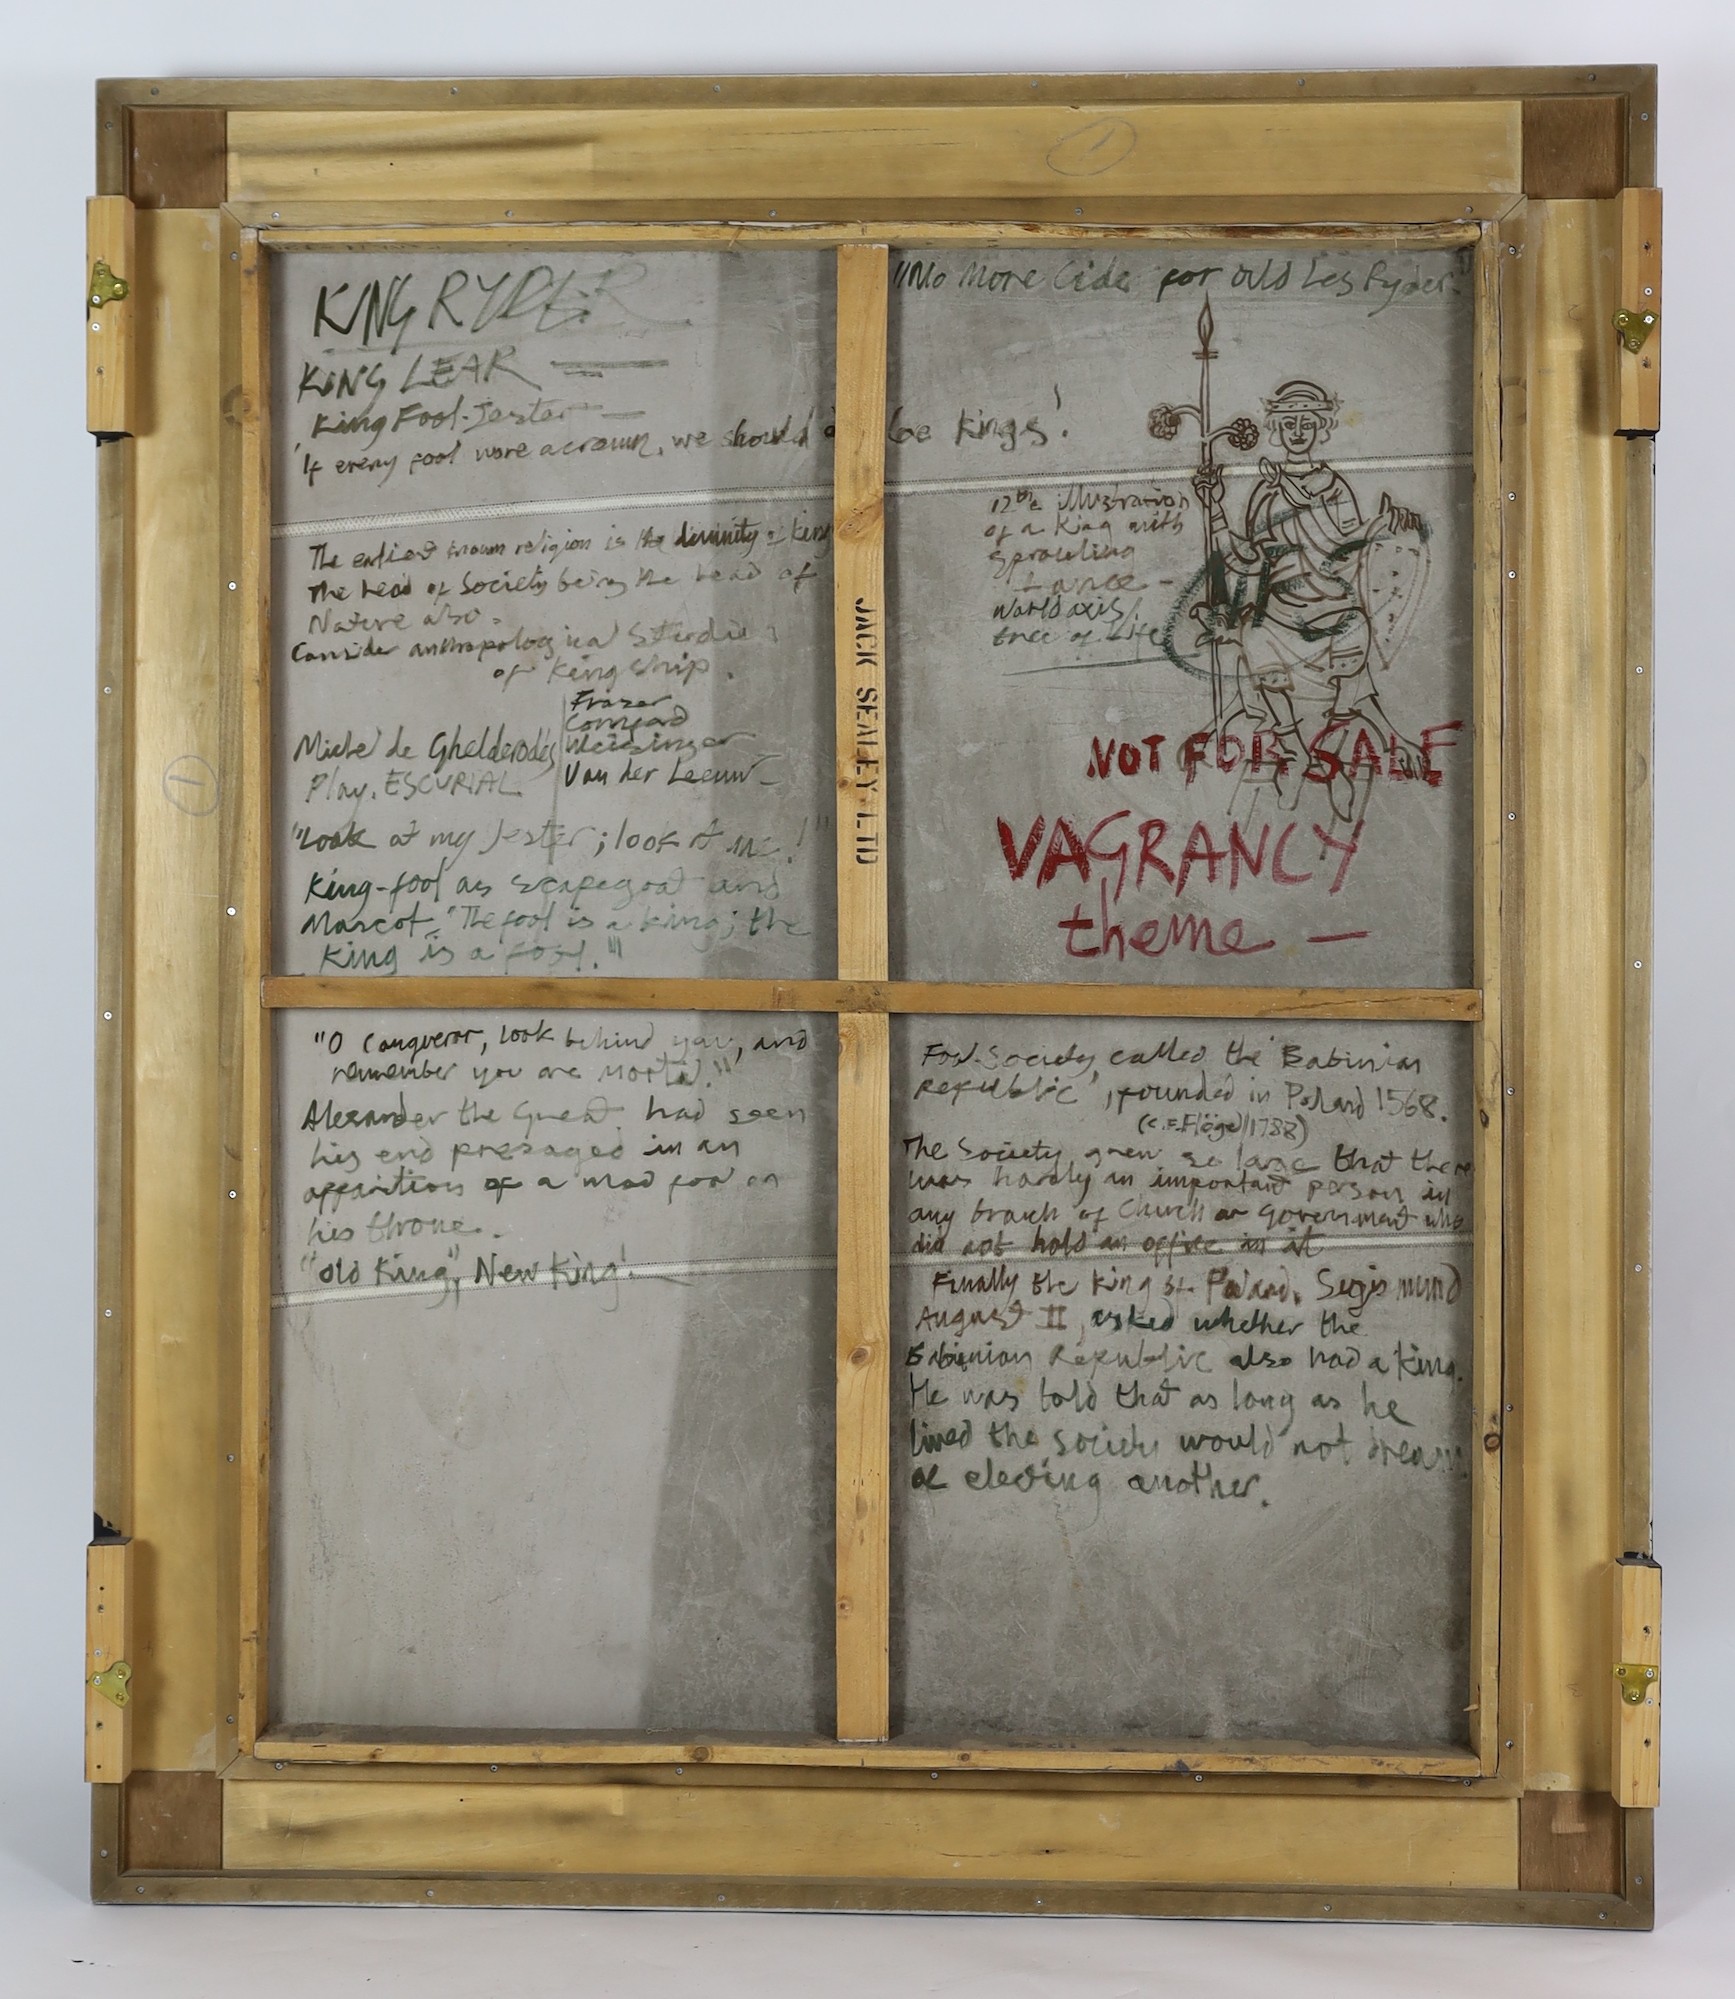 KING RYDER
KING LEAR
King Fool-Jester
'If every fool wore a crown, we should be kings!
The earliest known religion is the divinity of king
The head of Society being the head of
Nature also.
Consider anthropological Studies
of King ship.
Frazer
Michel de Ghelderodes
Play. ESCURIAL
Van der Leeuw
"Look at my Jester; look at me!"
King-fool as scapegoat and
Mascot. "The fool is a king; the
King is a fool."
"O Conqueror, look behind you, and
remember you are mortal."
Alexander the Great had seen
his end presaged in an
apparition of a mad fool on
his throne.
"old King", New King!
JACK SEALEY LTD
"No More Cider for Old Les Ryder."
12th illustration
of a King with
sprouting
Lance -
World axis/
tree of Life
NOT FOR SALE
VAGRANCY
theme -
Fool-Society, called the 'Babinian
Republic', founded in Poland 1568.
(C.F. Flögel 1788)
The Society grew so large that there
was hardly an important person in
any branch of Church or government who
did not hold an office in it
Finally the King of Poland, Sigismund
August II, asked whether the
Babinian Republic also had a king.
He was told that as long as he
lived the society would not dream
of electing another.
1
1